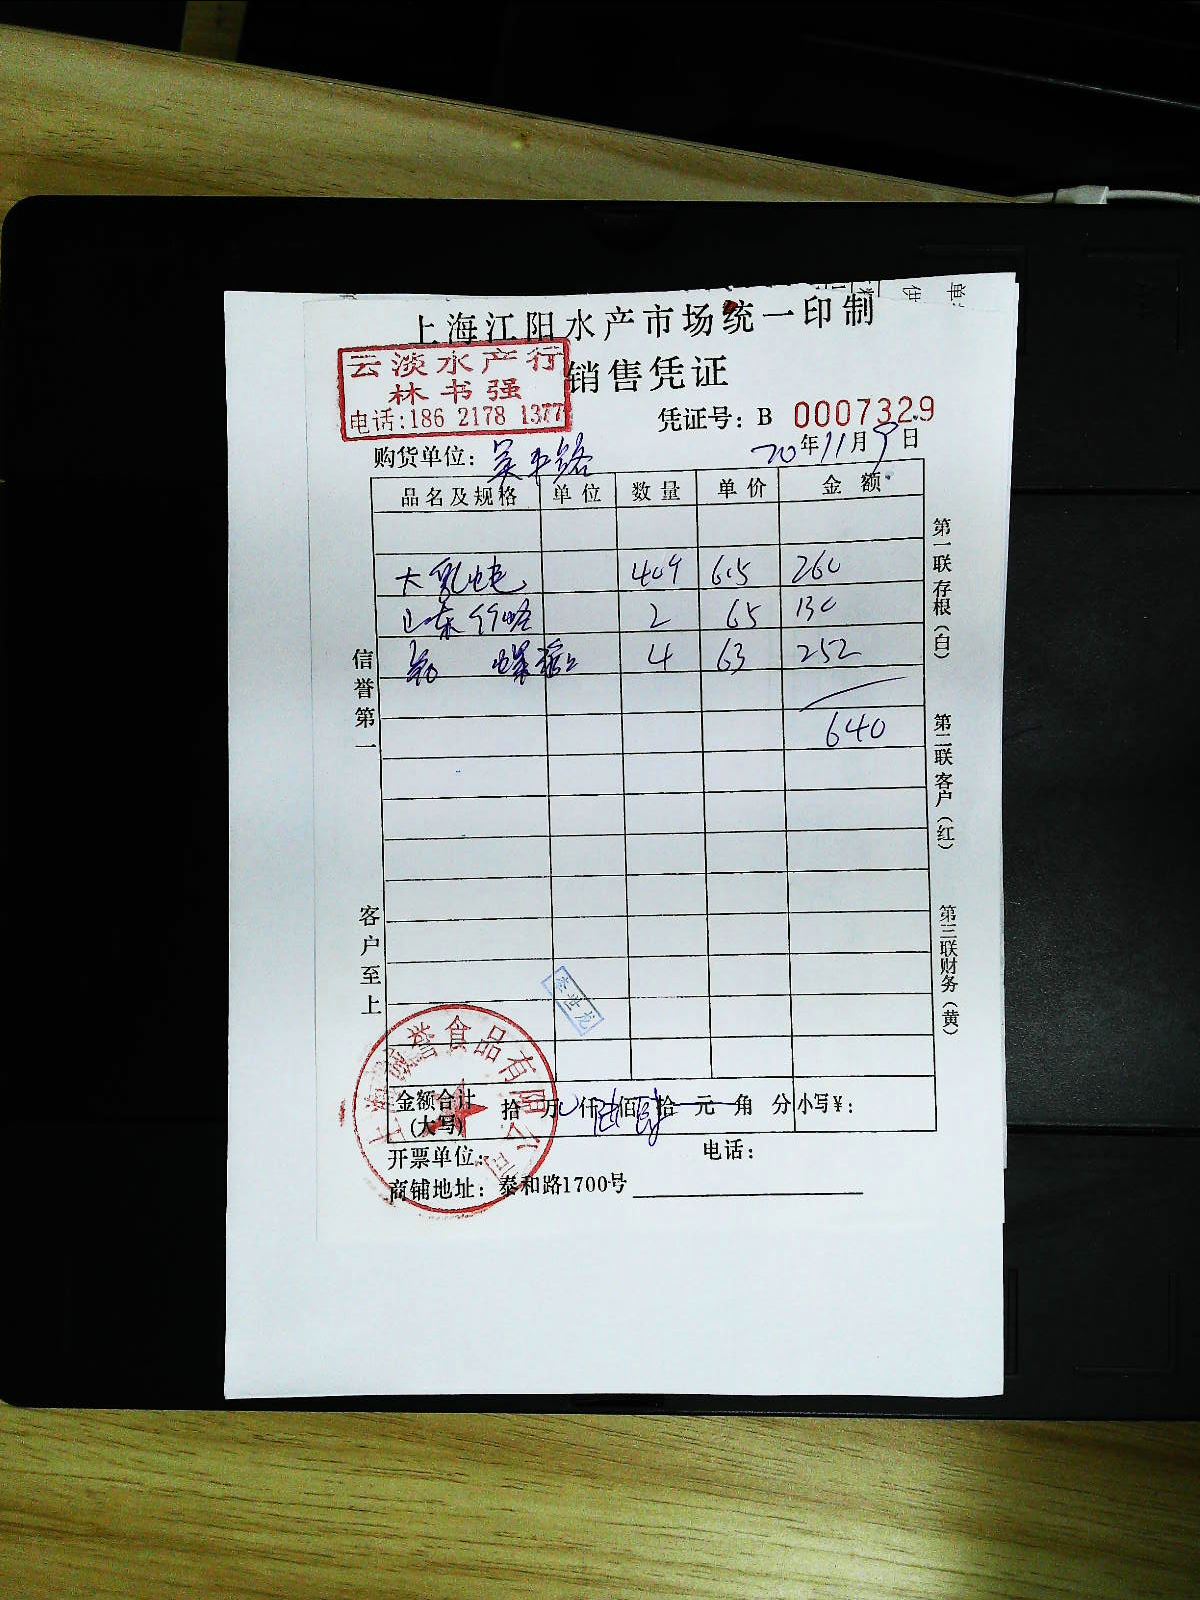 上海江阳水产市场统一印制
销售凭证
云淡水产行
林书强
电话:186 2178 1377
凭证号: B 0007329
购货单位: 吴中路
20年11月9日
品名及规格 单位 数量 单价 金额
大 409 605 260
山东 2 65 130
4 63 252
640
信誉第一
客户至上
第一联存根(白)
第二联客户(红)
第三联财务(黄)
李世龙
食品有限公司
金额合计(大写) 拾 万 仟 陆 佰 肆 拾 元 角 分 小写¥:
开票单位: 电话:
商铺地址: 泰和路1700号